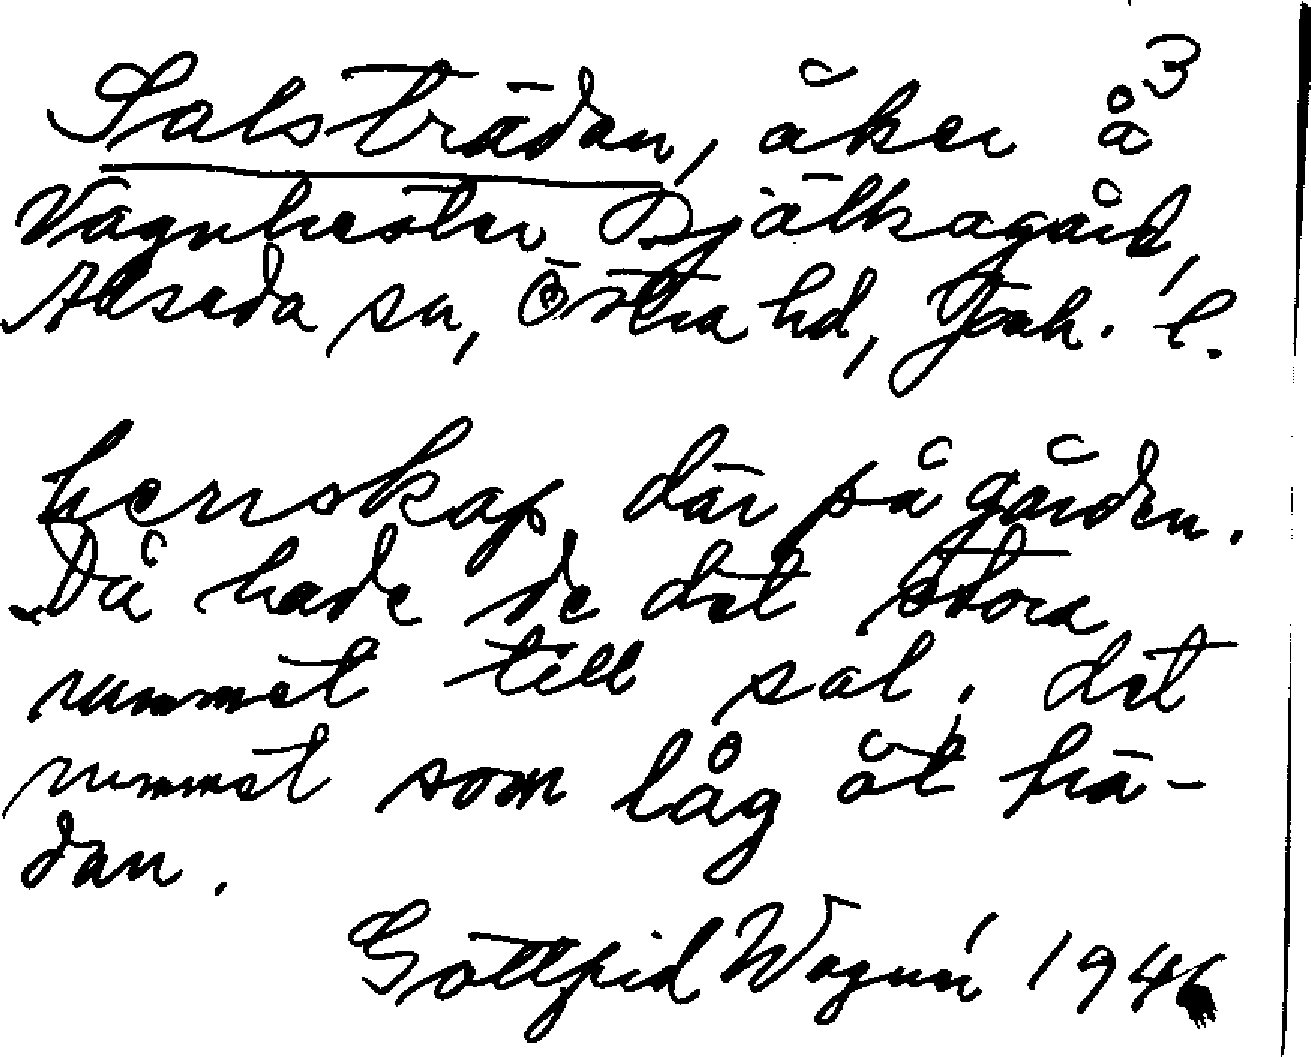 3
Salsträdan, åker å
Vagnhester
Alseda sn, Östra hd, Jönk. l.
herrskap där på gården.
Då hade de det stora
rummet till sal, det
rummet som låg åt trä-
dan.
Gottfrid Wagnér 1946